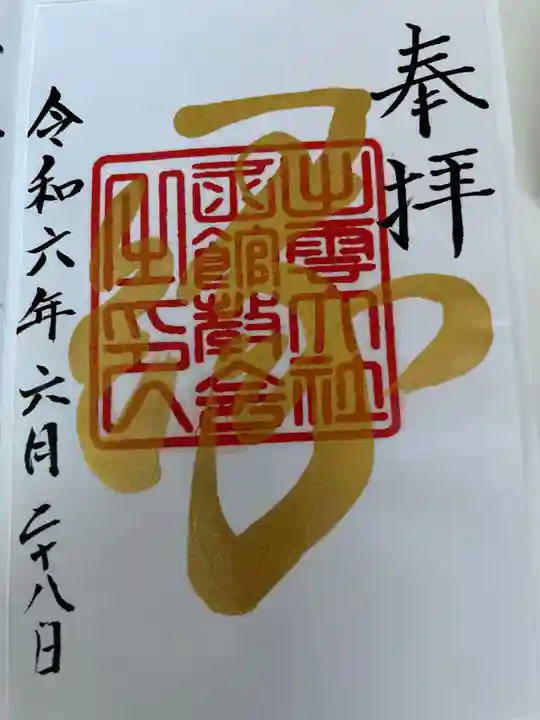 奉拝
出雲大社
函館教会
之印
令和六年六月二十八日